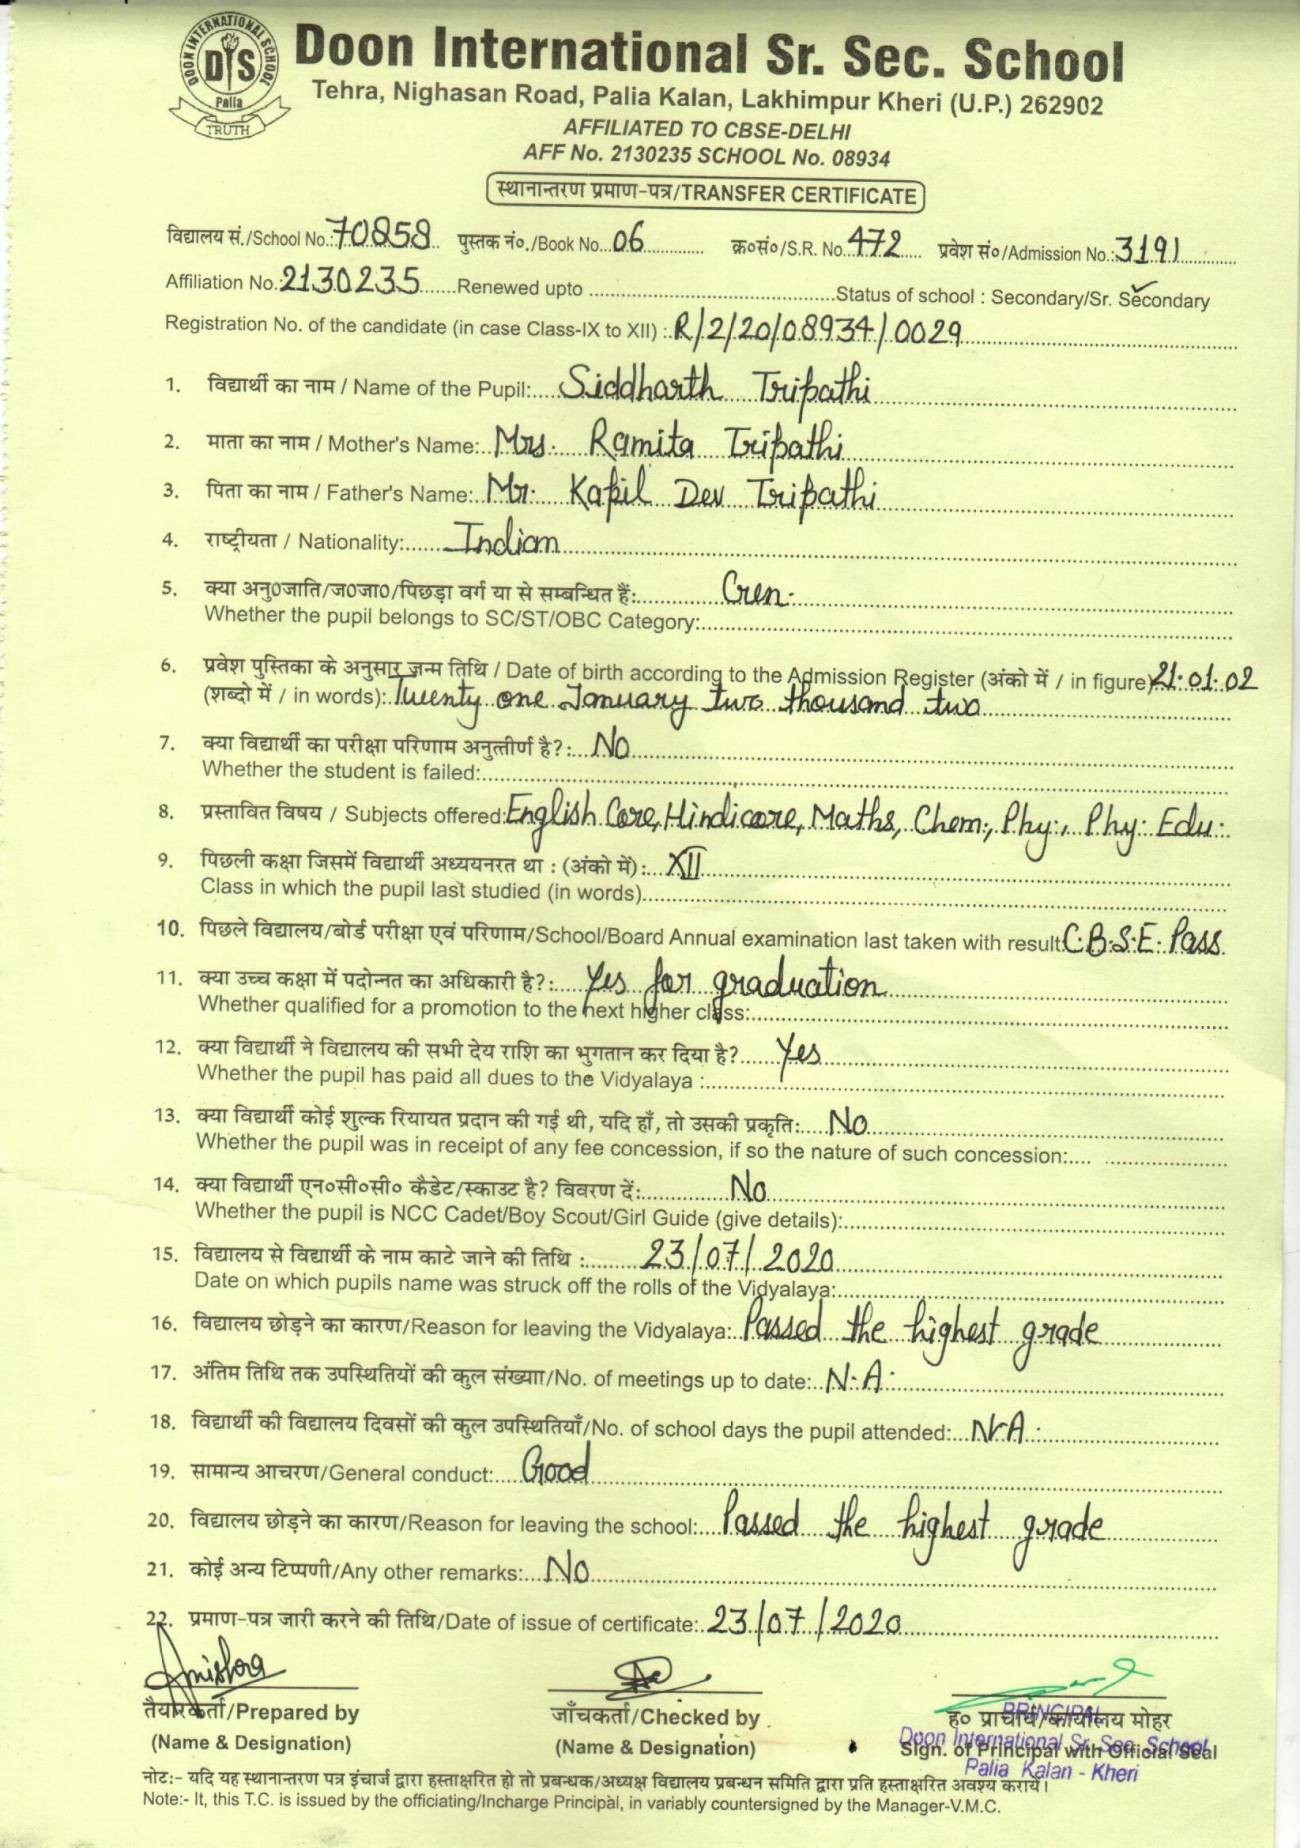 DOON INTERNATIONAL SCHOOL
DIS
Palia
TRUTH
Doon International Sr. Sec. School
Tehra, Nighasan Road, Palia Kalan, Lakhimpur Kheri (U.P.) 262902
AFFILIATED TO CBSE-DELHI
AFF No. 2130235 SCHOOL No. 08934
स्थानान्तरण प्रमाण-पत्र/TRANSFER CERTIFICATE
विद्यालय सं./School No.: 70858 पुस्तक नं०./Book No. 06 क्र०सं०/S.R. No. 472 प्रवेश सं०/Admission No.: 3191
Affiliation No.: 2130235 Renewed upto Status of school : Secondary/Sr. Secondary
Registration No. of the candidate (in case Class-IX to XII) : R/2/20/08934/0029
1. विद्यार्थी का नाम / Name of the Pupil: Siddharth Tripathi
2. माता का नाम / Mother's Name: Mrs. Ramita Tripathi
3. पिता का नाम / Father's Name: Mr. Kapil Dev Tripathi
4. राष्ट्रीयता / Nationality: Indian
5. क्या अनु0जाति/ज0जा0/पिछड़ा वर्ग या से सम्बन्धित हैं: Gen.
Whether the pupil belongs to SC/ST/OBC Category:
6. प्रवेश पुस्तिका के अनुसार जन्म तिथि / Date of birth according to the Admission Register (अंको में / in figure) 21.01.02
(शब्दो में / in words): Twenty one January two thousand two
7. क्या विद्यार्थी का परीक्षा परिणाम अनुत्तीर्ण है?: No
Whether the student is failed:
8. प्रस्तावित विषय / Subjects offered: English Core, Hindi core, Maths, Chem., Phy., Phy. Edu.
9. पिछली कक्षा जिसमें विद्यार्थी अध्ययनरत था : (अंको में): XII
Class in which the pupil last studied (in words)
10. पिछले विद्यालय/बोर्ड परीक्षा एवं परिणाम/School/Board Annual examination last taken with result: C.B.S.E. Pass
11. क्या उच्च कक्षा में पदोन्नत का अधिकारी है?: Yes for graduation
Whether qualified for a promotion to the next higher class:
12. क्या विद्यार्थी ने विद्यालय की सभी देय राशि का भुगतान कर दिया है? Yes
Whether the pupil has paid all dues to the Vidyalaya :
13. क्या विद्यार्थी कोई शुल्क रियायत प्रदान की गई थी, यदि हाँ, तो उसकी प्रकृति: No
Whether the pupil was in receipt of any fee concession, if so the nature of such concession:
14. क्या विद्यार्थी एन०सी०सी० कैडेट/स्काउट है? विवरण दें: No
Whether the pupil is NCC Cadet/Boy Scout/Girl Guide (give details):
15. विद्यालय से विद्यार्थी के नाम काटे जाने की तिथि : 23/07/2020
Date on which pupils name was struck off the rolls of the Vidyalaya:
16. विद्यालय छोड़ने का कारण/Reason for leaving the Vidyalaya: Passed the highest grade
17. अंतिम तिथि तक उपस्थितियों की कुल संख्याा/No. of meetings up to date: N.A.
18. विद्यार्थी की विद्यालय दिवसों की कुल उपस्थितियाँ/No. of school days the pupil attended: N.A.
19. सामान्य आचरण/General conduct: Good
20. विद्यालय छोड़ने का कारण/Reason for leaving the school: Passed the highest grade
21. कोई अन्य टिप्पणी/Any other remarks: No
22. प्रमाण-पत्र जारी करने की तिथि/Date of issue of certificate: 23/07/2020
तैयारकर्ता/Prepared by जाँचकर्ता/Checked by ह० प्राचार्य/कार्यालय मोहर
(Name & Designation) (Name & Designation) Sign. of Principal with Official Seal
PRINCIPAL
Doon International Sr. Sec. School
Palia Kalan - Kheri
नोटः- यदि यह स्थानान्तरण पत्र इंचार्ज द्वारा हस्ताक्षरित हो तो प्रबन्धक/अध्यक्ष विद्यालय प्रबन्धन समिति द्वारा प्रति हस्ताक्षरित अवश्य करायें।
Note:- It, this T.C. is issued by the officiating/Incharge Principal, in variably countersigned by the Manager-V.M.C.